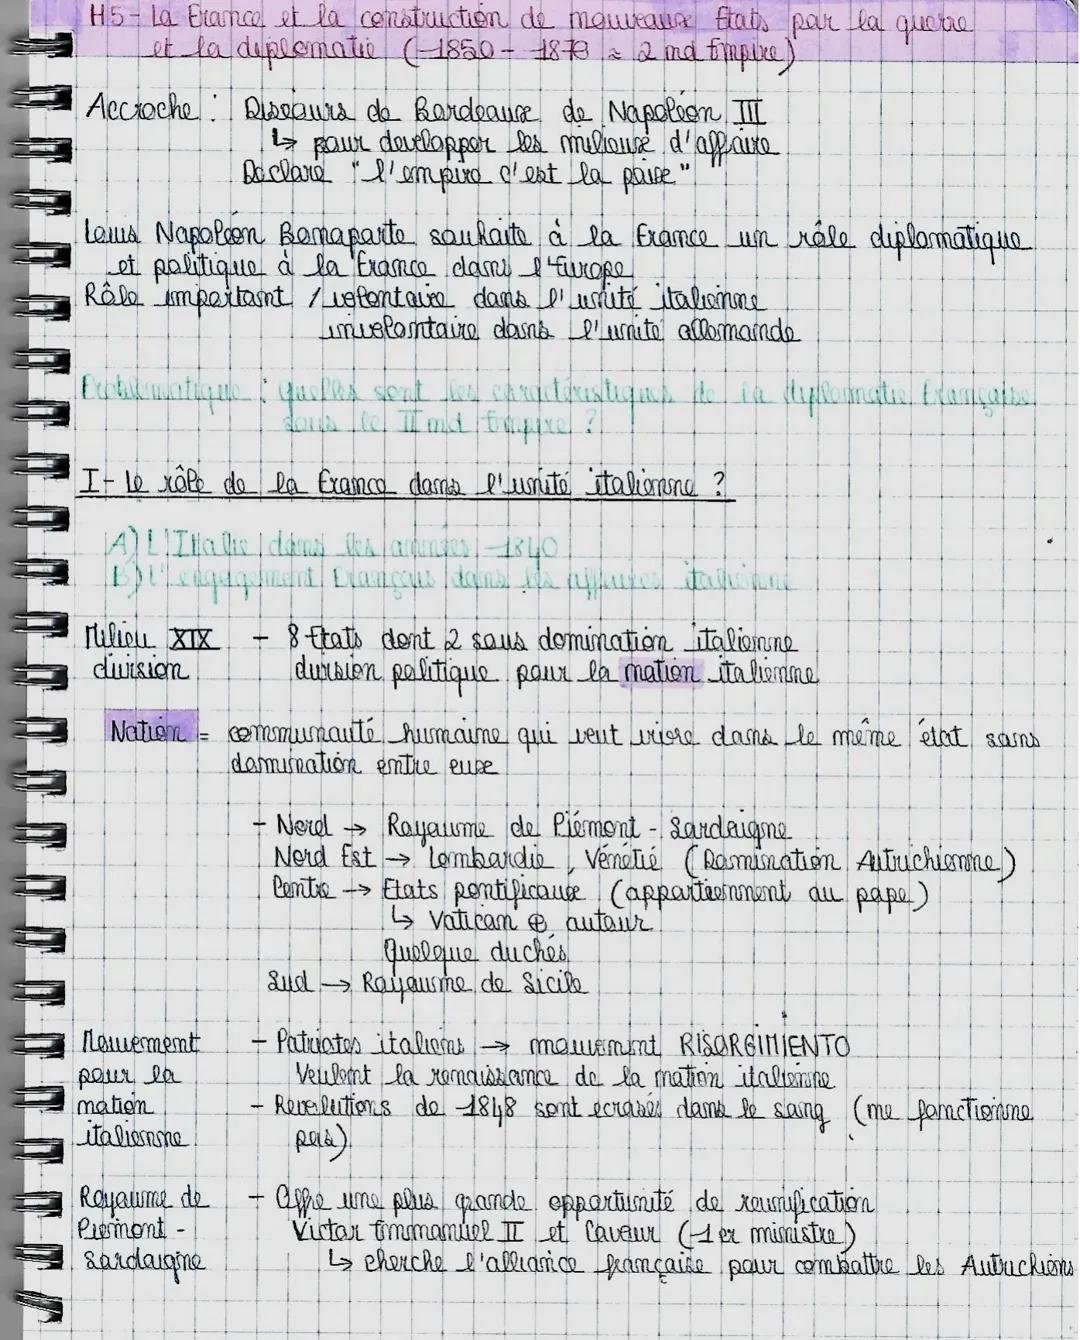 H5 - La France et la construction de nouveaux Etats par la guerre
et la diplomatie (1850 - 1870 ≈ 2 nd Empire)
Accroche : Discours de Bordeaux de Napoléon III
↳ pour developper les milieux d'affaire
Declare "l'empire c'est la paix"
Louis Napoléon Bonaparte souhaite à la France un rôle diplomatique
et politique à la France dans l'Europe
Rôle important / volontaire dans l'unité italienne
involontaire dans l'unité allemande
Problématique : quelles sont les caractéristiques de la diplomatie Française
sous le II nd Empire ?
I - Le rôle de la France dans l'unité italienne ?
A) L'Italie dans les années 1840
B) L'engagement Français dans les affaires italienne
Milieu XIX - 8 Etats dont 2 sous domination italienne
division division politique pour la nation italienne
Nation = communauté humaine qui veut vivre dans le même état sans
domination entre eux
- Nord → Royaume de Piémont - Sardaigne
Nord Est → Lombardie, Vénétie (Domination Autrichienne)
Centre → Etats pontificaux (appartiennent au pape)
↳ Vatican ⊕ autour
Quelque duchés
Sud → Royaume de Sicile
Mouvement - Patriotes italiens → mouvemnt RISORGIMIENTO
pour la Veulent la renaissance de la nation italienne
nation - Revolutions de 1848 sont ecrasés dans le sang (ne fonctionne
italienne pas)
Royaume de - Offre une plus grande opportunité de reunification
Piemont - Victor Emmanuel II et Cavour (1er ministre)
Sardaigne ↳ cherche l'alliance française pour combattre les Autrichiens